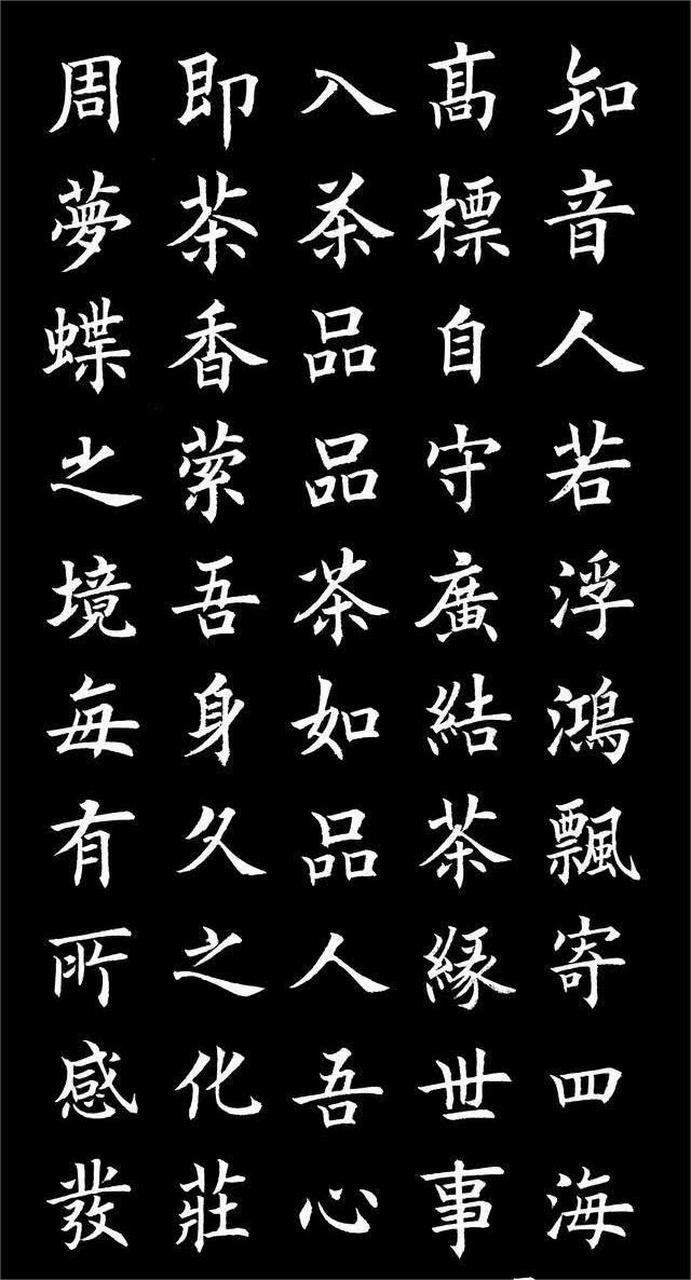 知音人若浮鴻飄寄四海
髙標自守廣結茶緣世事
入茶品品茶如品人吾心
即茶香縈吾身久之化莊
周夢蝶之境每有所感發